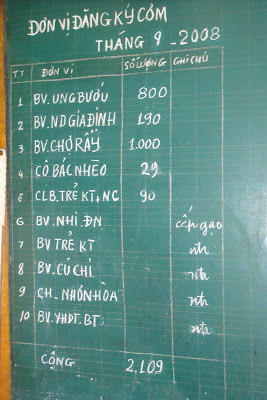 ĐƠN VỊ ĐĂNG KÝ CƠM
THÁNG 9 - 2008
TT ĐƠN VỊ SỐ LƯỢNG GHI CHÚ
1 BV. UNG BƯỚU 800
2 BV. ND GIA ĐỊNH 190
3 BV. CHỢ RẪY 1.000
4 CÔ BÁC NHÈO 29
5 CLB. TRẺ KT, NC 90
6 BV. NHI. ĐN cấp gạo
7 BV TRẺ KT nt
8 BV. CỦ CHI nt
9 CH. NHƠN HÒA nt
10 BV. YHDT. BT nt
CỘNG 2.109